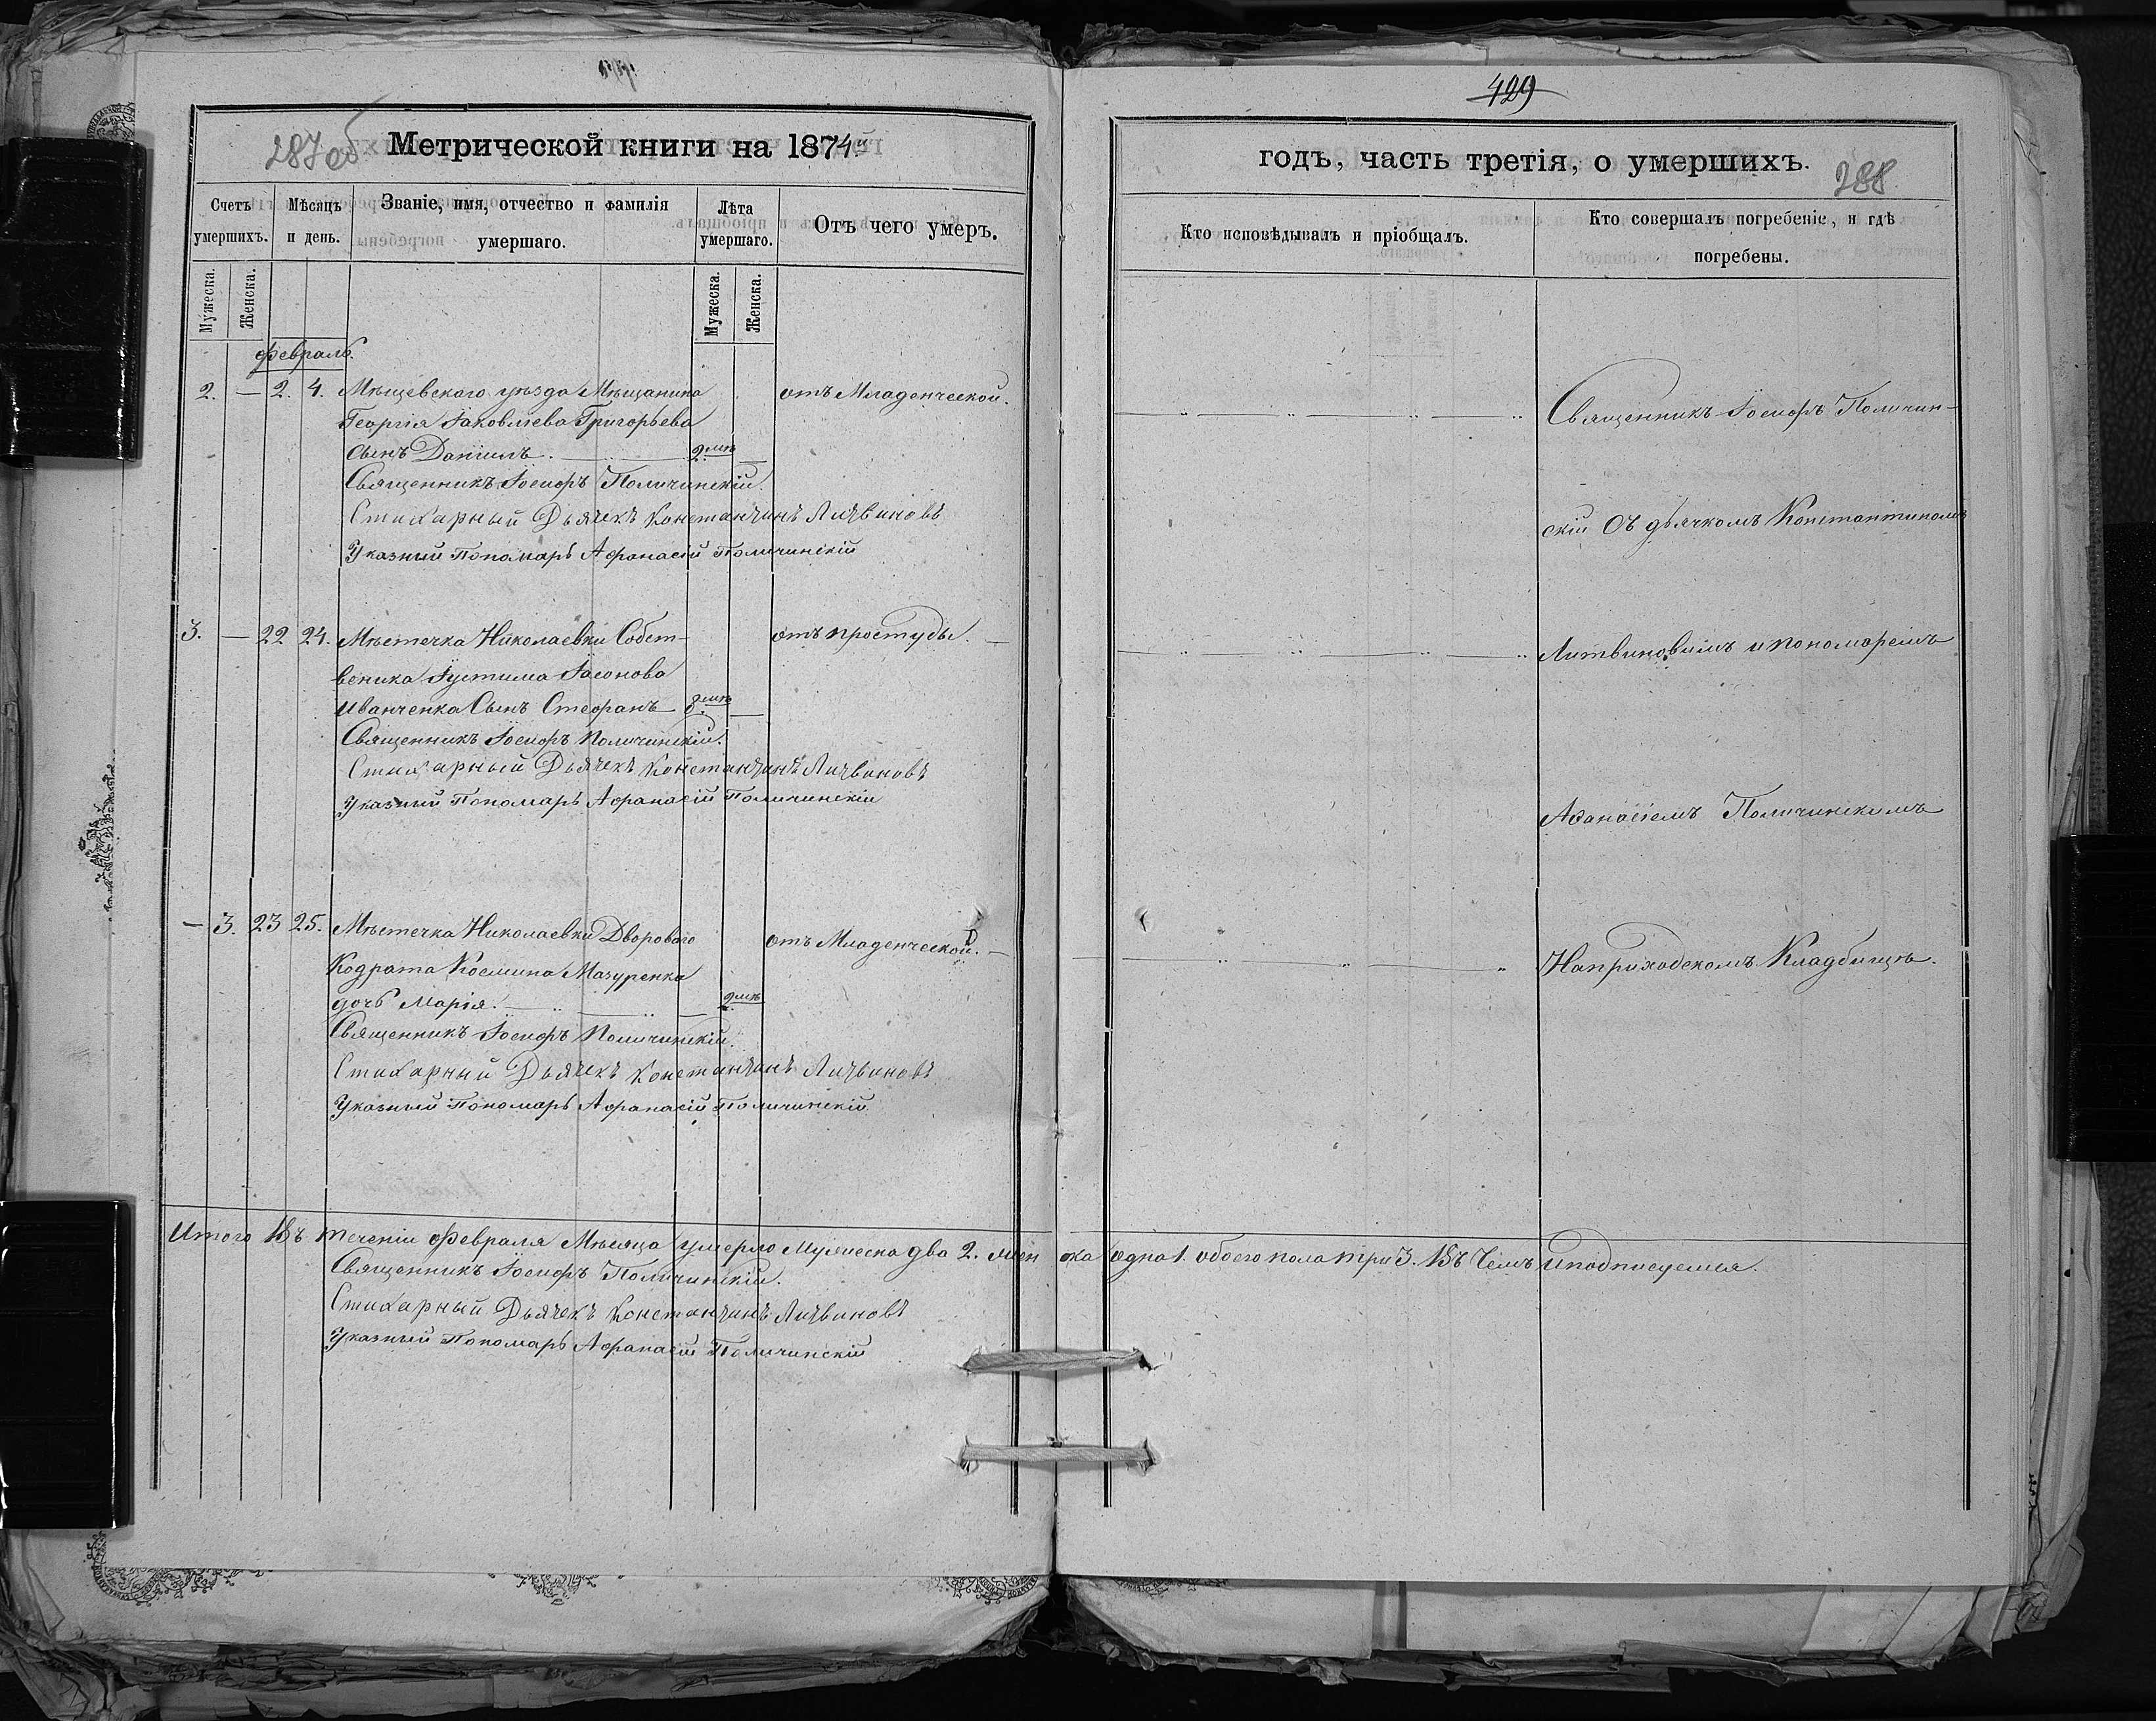 429
287об
Метрической книги на 1874
годъ, часть третія, о умершихъ.
288
Счетъ умершихъ.
Мѣсяцъ и день.
Званіе, имя, отчество и фамилія умершаго.
Лѣта умершаго.
Отъ чего умеръ.
Кто исповѣдывалъ и пріобщалъ.
Кто совершалъ погребеніе, и гдѣ погребены.
Мужеска.
Женска.
Мужеска.
Женска.
Февраль.
2. — 2. 4. Мѣщевского уѣзда Мѣщанина
отъ Младенческой.
Георгія Іаковлева Григорьева
сынъ Даніилъ. 2 лѣтъ
Священникъ Іосифъ Поличинскій.
Стихарный Дьячекъ Константинъ Литвиновъ
Указный Пономарь Афанасій Поличинскій
Священникъ Іосифъ Поличин-
скій Съ дьячкомъ Константиномъ
3. — 22 24. Мѣстечка Николаевки Собст-
отъ простуды.
веника Іустима Іасонова
Иванченка Сынъ Стефанъ 8 лѣтъ
Священникъ Іосифъ Поличинскій.
Стихарный Дьячекъ Константинъ Литвиновъ
Указный Пономарь Афанасій Поличинскій
Литвиновимъ и пономаремъ
Афанасіемъ Поличинскимъ
— 3. 23 25. Мѣстечка Николаевки Дворового
отъ Младенческой.
Кодрата Космина Мазуренка
дочь Марія. 2 лѣтъ
Священникъ Іосифъ Поличинскій.
Стихарный Дьячекъ Константинъ Литвиновъ
Указный Пономарь Афанасій Поличинскій
На приходскомъ Кладбищѣ.
Итого Въ теченіи Февраля Мѣсяца умерло Мужеска два 2. женска одна 1. обоего пола три 3. Въ Чемъ и подписуемся.
Священникъ Іосифъ Поличинскій.
Стихарный Дьячекъ Константинъ Литвиновъ
Указный Пономарь Афанасій Поличинскій